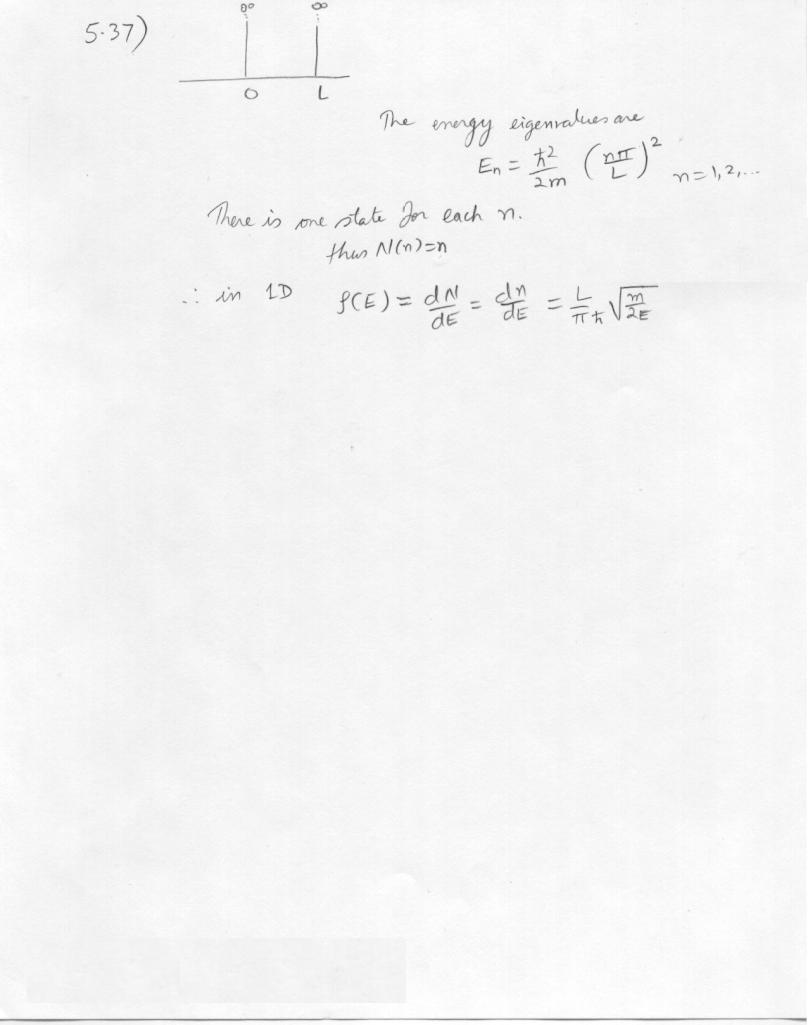 5.37)
∞ ∞
0 L
The energy eigenvalues are
Eₙ = ħ²/2m (nπ/L)² n=1,2,...
There is one state for each n.
thus N(n)=n
∴ in 1D ρ(E) = dN/dE = dn/dE = L/πħ √(m/2E)